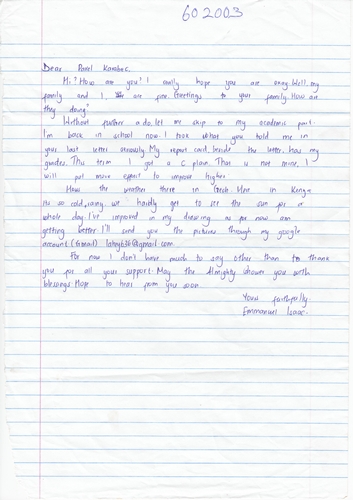 602003
Dear Pavel Karabec,
Hi? How are you? I really hope you are okay. Well, my
family and I, are fine. Greetings to your family. How are
they doing?
Without further ado, let me skip to my academic part.
I'm back in school now. I took what you told me in
your last letter seriously. My report card, beside the letter, has my
grades. This term I got a C plain. That is not mine. I
will put more effort to improve higher.
How the weather there in Czech. Here in Kenya
its so cold, rainy, we hardly get to see the sun for a
whole day. I've improved in my drawing as for now am
getting better. I'll send you the pictures through my google
account (Gmail)
For now I don't have much to say other than to thank
you for all your support. May the Almighty shower you with
blessings. Hope to hear from you soon.
Yours faithfully
Emmanuel Isaac.